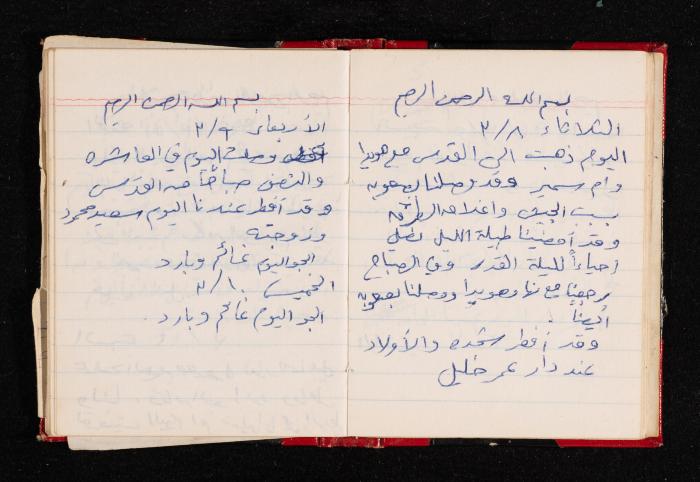 بسم الله الرحمن الرحيم
الثلاثاء ٣/٨
اليوم ذهبت الى القدس مع هويدا
وأم سمير وقد وصلنا بصعوبه
بسبب الجيش واغلاق الطريق
وقد أمضينا طيلة الليل نصلي
احياءاً لليلة القدر وفي الصباح
رجعنا مع نها وهويدا ووصلنا بصعوبه
أيضاً .
وقد أفطر والأولاد
عند دار عمر خليل
بسم الله الرحمن الرحيم
الأربعاء ٣/٩
وصلت اليوم في العاشره
والنصف صباحاً من القدس
وقد أفطر عندنا اليوم سعيد محمود
وزوجته
الجو اليوم غائم وبارد
الخميس ٣/١٠
الجو اليوم غائم وبارد .